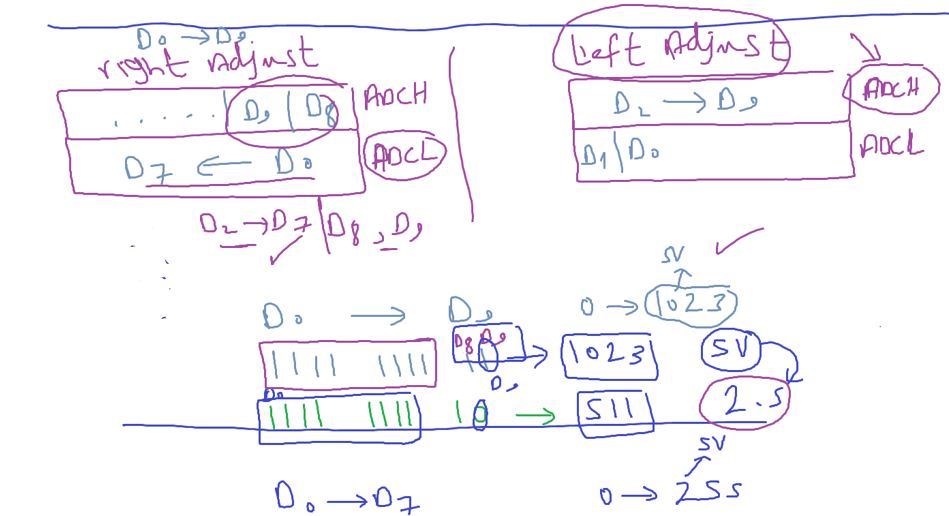 D0 → D9
right Adjust
. . . . . | D9 | D8 ADCH
D7 ← D0 ADCL
D2 → D7 | D8 , D9
Left Adjust
D2 → D9 ADCH
D1 | D0 ADCL
D0 → D9
5V
0 → 1023
1111 1111
D8 D9
→ 1023 5V
D0 D9
1111 1111 10 → 511 2.5
D0 → D7
5V
0 → 255